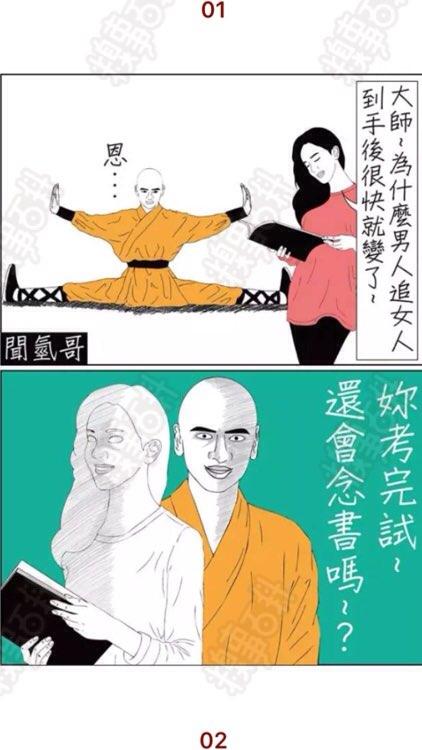 01
大師~為什麼男人追女人
到手後很快就變了~
恩...
聞氫哥
妳考完試~
還會念書嗎~?
02